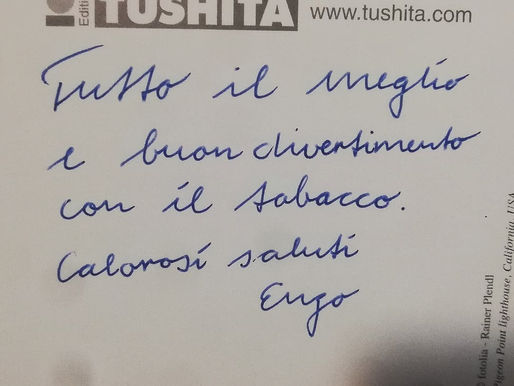 Editi
TUSHITA www.tushita.com
Tutto il meglio
e buon divertimento
con il tabacco.
Calorosi saluti
Enzo
fotolia - Rainer Plendl
Pigeon Point lighthouse, California, USA